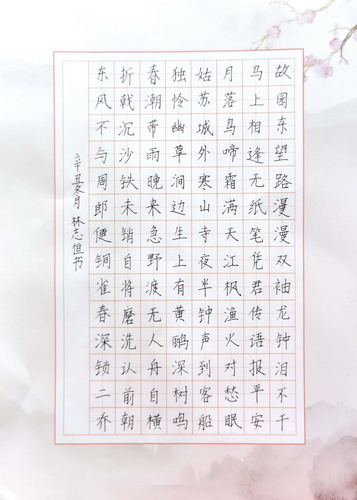 故园东望路漫漫双袖龙钟泪不干
马上相逢无纸笔凭君传语报平安
月落乌啼霜满天江枫渔火对愁眠
姑苏城外寒山寺夜半钟声到客船
独怜幽草涧边生上有黄鹂深树鸣
春潮带雨晚来急野渡无人舟自横
折戟沉沙铁未销自将磨洗认前朝
东风不与周郎便铜雀春深锁二乔
辛丑亥月 林志恒书